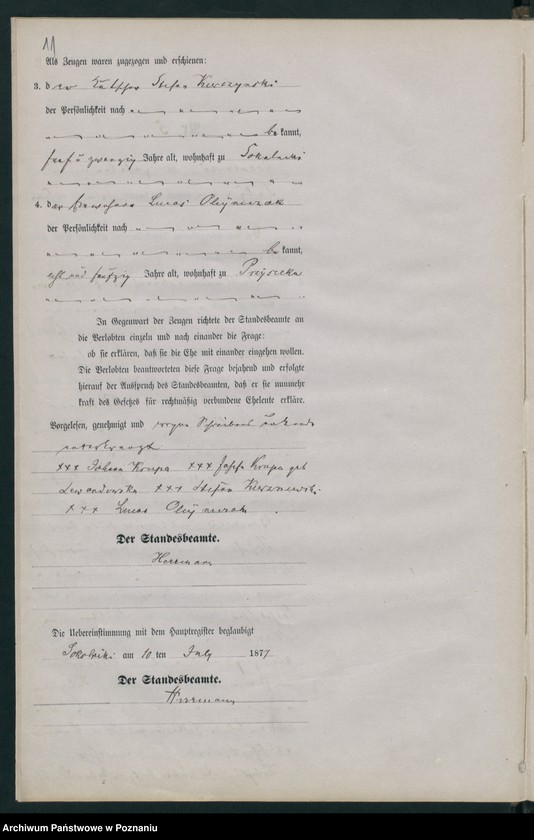 11
Als Zeugen waren zugezogen und erschienen:
3. der Kutscher Stefan Kurczynski
der Persönlichkeit nach
bekannt,
fünf u zwanzig Jahre alt, wohnhaft zu Sokolniki
4. der Einwohner Lucas Olejniczak
der Persönlichkeit nach
bekannt,
acht und fünfzig Jahre alt, wohnhaft zu Przysieka
In Gegenwart der Zeugen richtete der Standesbeamte an
die Verlobten einzeln und nach einander die Frage:
ob sie erklären, daß sie die Ehe mit einander eingehen wollen.
Die Verlobten beantworteten diese Frage bejahend und erfolgte
hierauf der Ausspruch des Standesbeamten, daß er sie nunmehr
kraft des Gesetzes für rechtmäßig verbundene Eheleute erkläre.
Vorgelesen, genehmigt und wegen Schreibens
unterkreuzt
+++ Johann Krupa +++ Josefa Krupa geb
Lewandowska +++ Stefan
+++ Lucas Olejniczak
Der Standesbeamte.
Herrmann
Die Uebereinstimmung mit dem Hauptregister beglaubigt
Sokolniki am 10 ten July 1877
Der Standesbeamte.
Herrmann
Archiwum Państwowe w Poznaniu